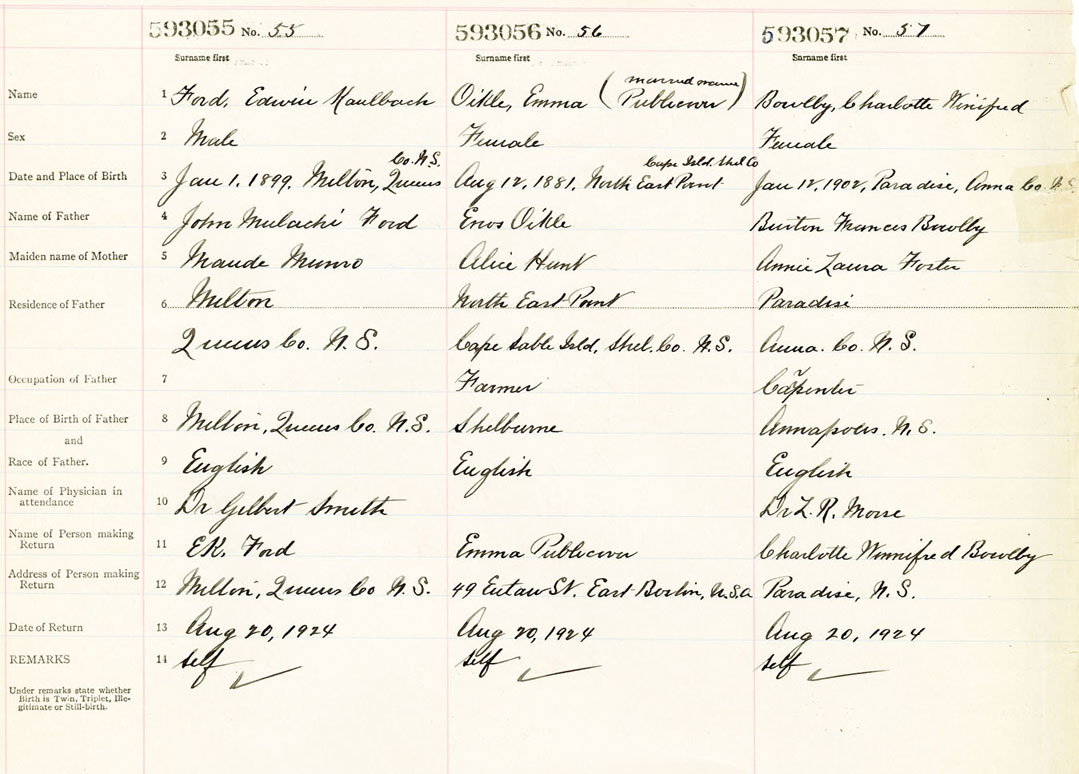 593055 No. 55
593056 No. 56
593057 No. 57
Surname first
Surname first
Surname first
Name 1 Ford, Edwin Kaulback
Oikle, Emma (married name Publicover)
Bowlby, Charlotte Winifred
Sex 2 Male
Female
Female
Date and Place of Birth 3 Jan 1, 1899, Milton, Queens Co. N.S.
Aug 12, 1881, North East Point Cape Isld. Shel Co
Jan 12, 1902, Paradise, Anna Co. N.S.
Name of Father 4 John Malachi Ford
Enos Oikle
Burton Frances Bowlby
Maiden name of Mother 5 Maude Munro
Alice Hunt
Annie Laura Foster
Residence of Father 6 Milton
North East Point
Paradise
Queens Co. N.S.
Cape Sable Isld, Shel. Co. N.S.
Anna. Co. N.S.
Occupation of Father 7
Farmer
Carpenter
Place of Birth of Father 8 Milton, Queens Co. N.S.
Shelburne
Annapolis. N.S.
and
Race of Father. 9 English
English
English
Name of Physician in
attendance 10 Dr Gilbert Smith
Dr L. R. Morse
Name of Person making
Return 11 EK. Ford
Emma Publicover
Charlotte Winnifred Bowlby
Address of Person making
Return 12 Milton, Queens Co N.S.
49 Eutaw St. East Boston, U.S.A
Paradise, N.S.
Date of Return 13 Aug 20, 1924
Aug 20, 1924
Aug 20, 1924
REMARKS 14 self
self
self
Under remarks state whether
Birth is Twin, Triplet, Ille-
gitimate or Still-birth.